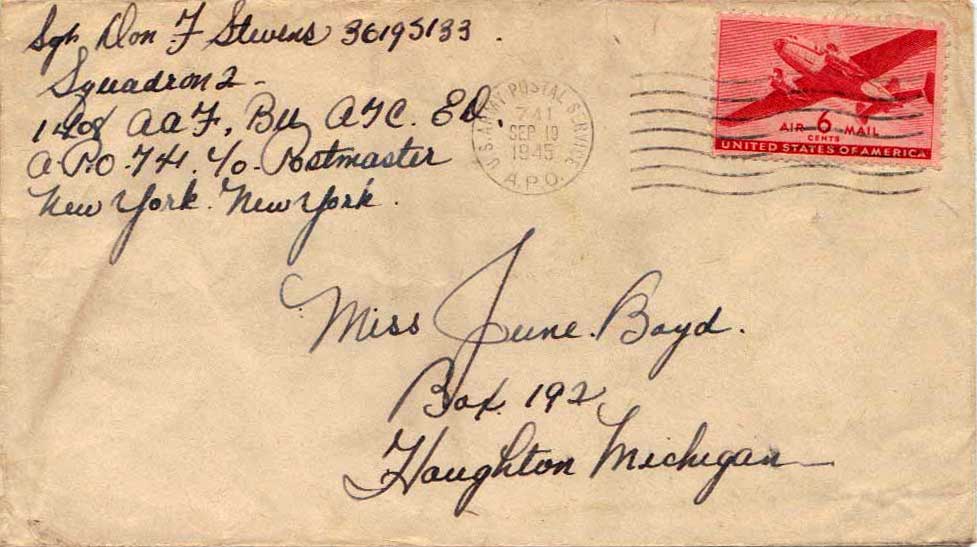 Sgt. Don F Stevens 36195133.
Squadron 2-
1408 AAF, BU ATC. ED.
A.P.O. 741. c/o. Postmaster
New York. New York.
U.S. ARMY POSTAL SERVICE
741
SEP 19
1945
A.P.O.
AIR 6 MAIL
CENTS
UNITED STATES OF AMERICA
Miss June. Boyd.
Box. 192,
Houghton Michigan